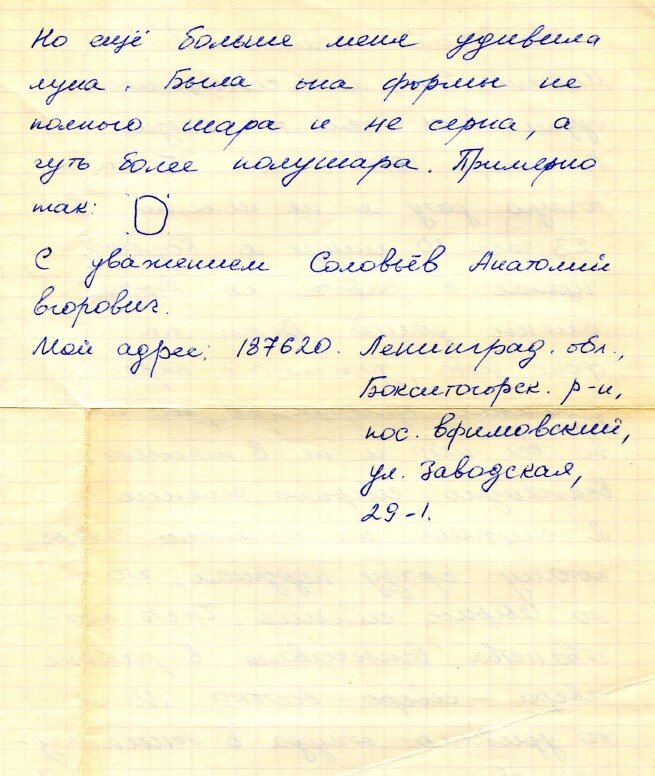 Но ещё больше меня удивила
луна. Была она формы не
полного шара и не серпа, а
чуть более полушара. Примерно
так:
С уважением Соловьёв Анатолий
Егорович.
Мой адрес: 187620. Ленинград. обл.,
Бокситогорск. р-н,
пос. Ефимовский,
ул. Заводская,
29-1.